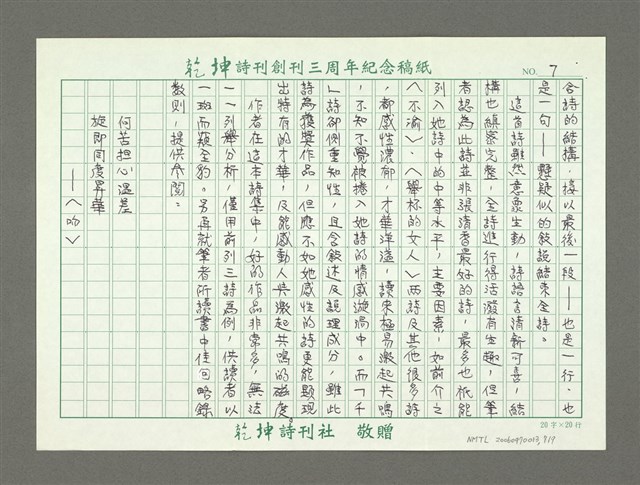 乾坤詩刊創刊三周年紀念稿紙
NO. 7
合詩的結構，接以最後一段——也是一行，也
是一句——懸疑似的敘說結束全詩。
這首詩雖然意象生動，詩語言清新可喜，結
構也縝密完整，全詩進行得活潑有生趣，但筆
者認為此詩並非張清香最好的詩，最多也祇能
列入她詩中的中等水平，主要因素，如前介之
〈不渝〉、〈舉杯的女人〉兩詩及其他很多詩
，都感性濃郁，才華洋溢，讀來極易激起共鳴
，不知不覺被捲入她詩的情感漩渦中。而「千
」詩卻側重知性，且含敘述及說理成分，雖此
詩為獲獎作品，但應不如她感性的詩更能顯現
出特有的才華，及能感動人與激起共鳴的磁度。
作者在這本詩集中，好的作品非常多，無法
一一列舉分析，僅用前列三詩為例，供讀者以
一斑而窺全豹。另再就筆者所讀書中佳句略錄
數則，提供參閱：
何苦擔心溫差
旋即同度昇華
——〈吻〉
20字×20行
乾坤詩刊社 敬贈
NMTL 20060970013,7/9